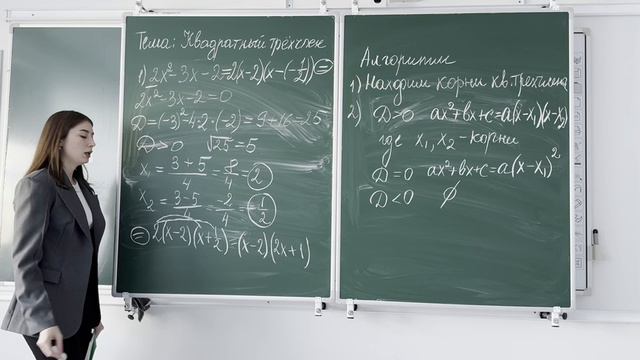 Тема: Квадратный трёхчлен
1) 2x²-3x-2=2(x-2)(x-(-1/2))=
2x²-3x-2=0
D=(-3)²-4·2·(-2)=9+16=25
D>0 √25=5
x₁=(3+5)/4=8/4=2
x₂=(3-5)/4=-2/4=-1/2
=2(x-2)(x+1/2)=(x-2)(2x+1)
Алгоритм
1) Находим корни кв. трехчлена
2) D>0 ax²+bx+c=a(x-x₁)(x-x₂)
где x₁, x₂ - корни
D=0 ax²+bx+c=a(x-x₁)²
D<0 ∅